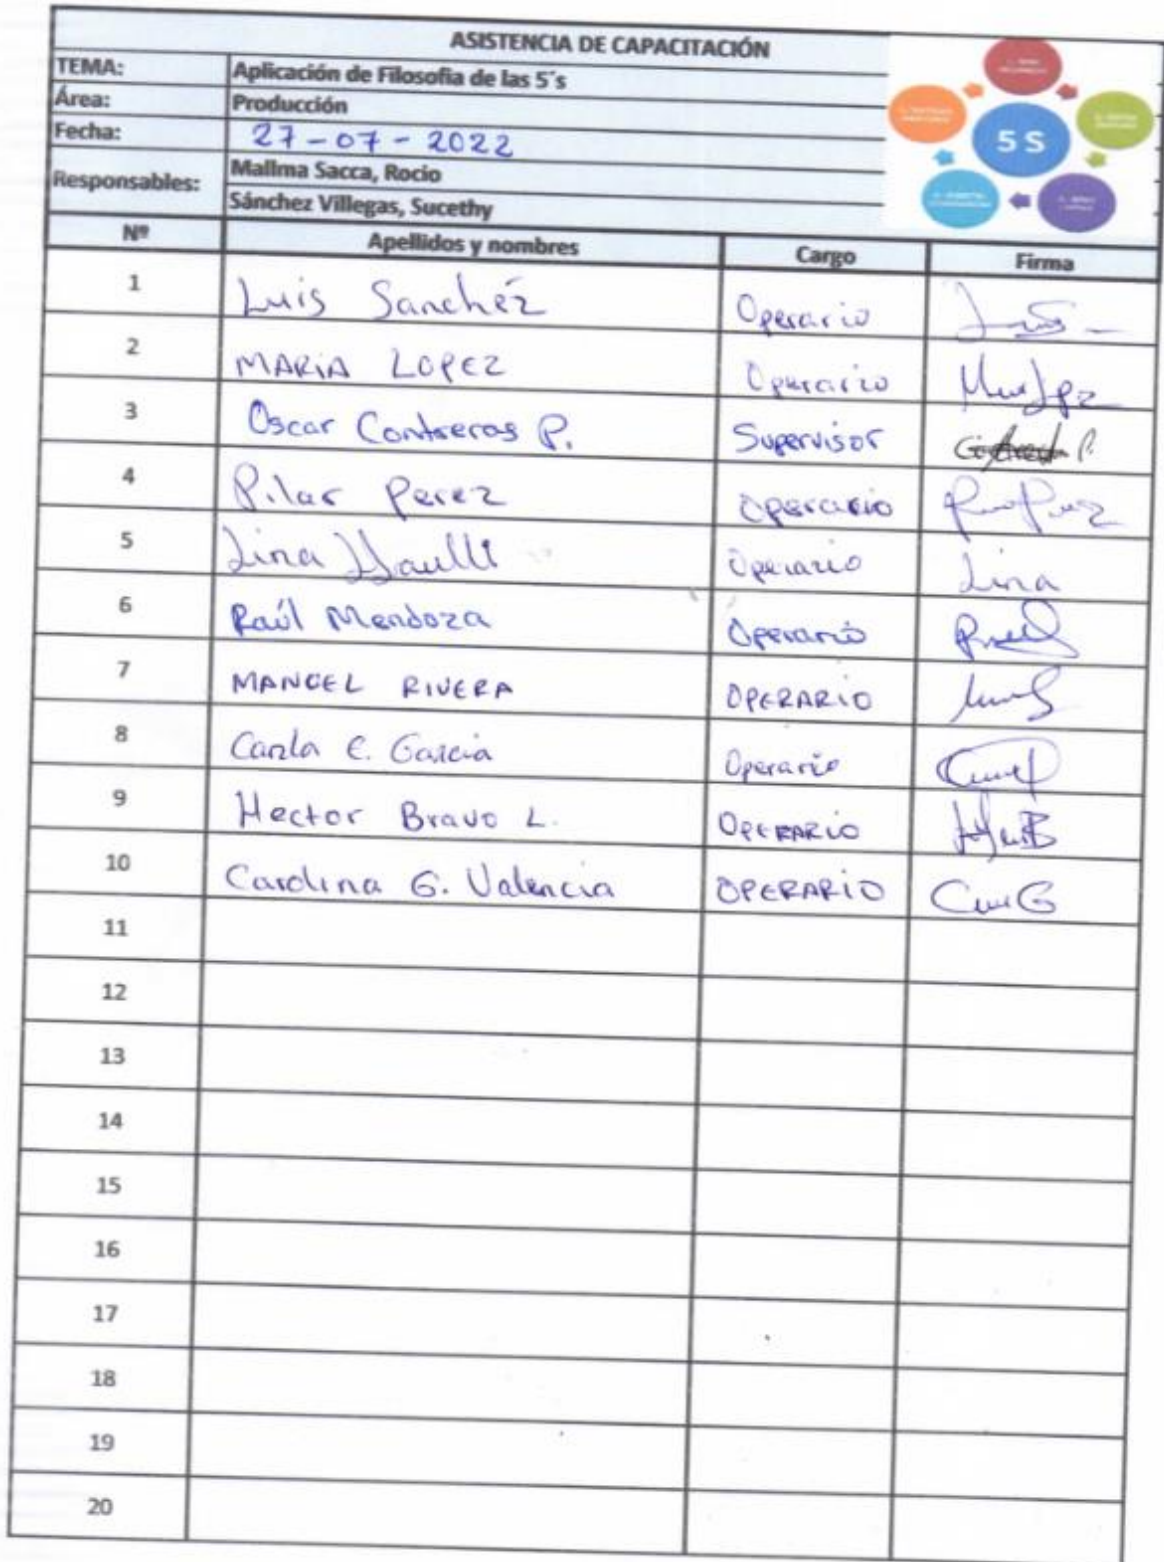 ASISTENCIA DE CAPACITACIÓN
TEMA: Aplicación de Filosofia de las 5´s
Área: Producción
Fecha: 27-07-2022
Responsables: Mallma Sacca, Rocio
Sánchez Villegas, Sucethy
5 S
Nº Apellidos y nombres Cargo Firma
1 Luis Sanchéz Operario
2 MARIA LOPEZ Operario
3 Oscar Contreras P. Supervisor
4 Pilar Perez Operario
5 Lina Operario Lina
6 Raúl Mendoza Operario
7 MANUEL RIVERA OPERARIO
8 Carla C. Garcia Operario
9 Hector Bravo L. OPERARIO
10 Carolina G. Valencia OPERARIO
11
12
13
14
15
16
17
18
19
20